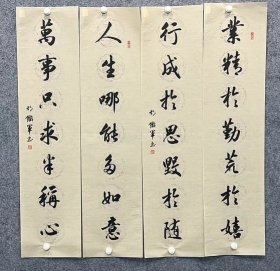 業精於勤荒於嬉
行成於思毀於随
人生哪能多如意
萬事只求半稱心